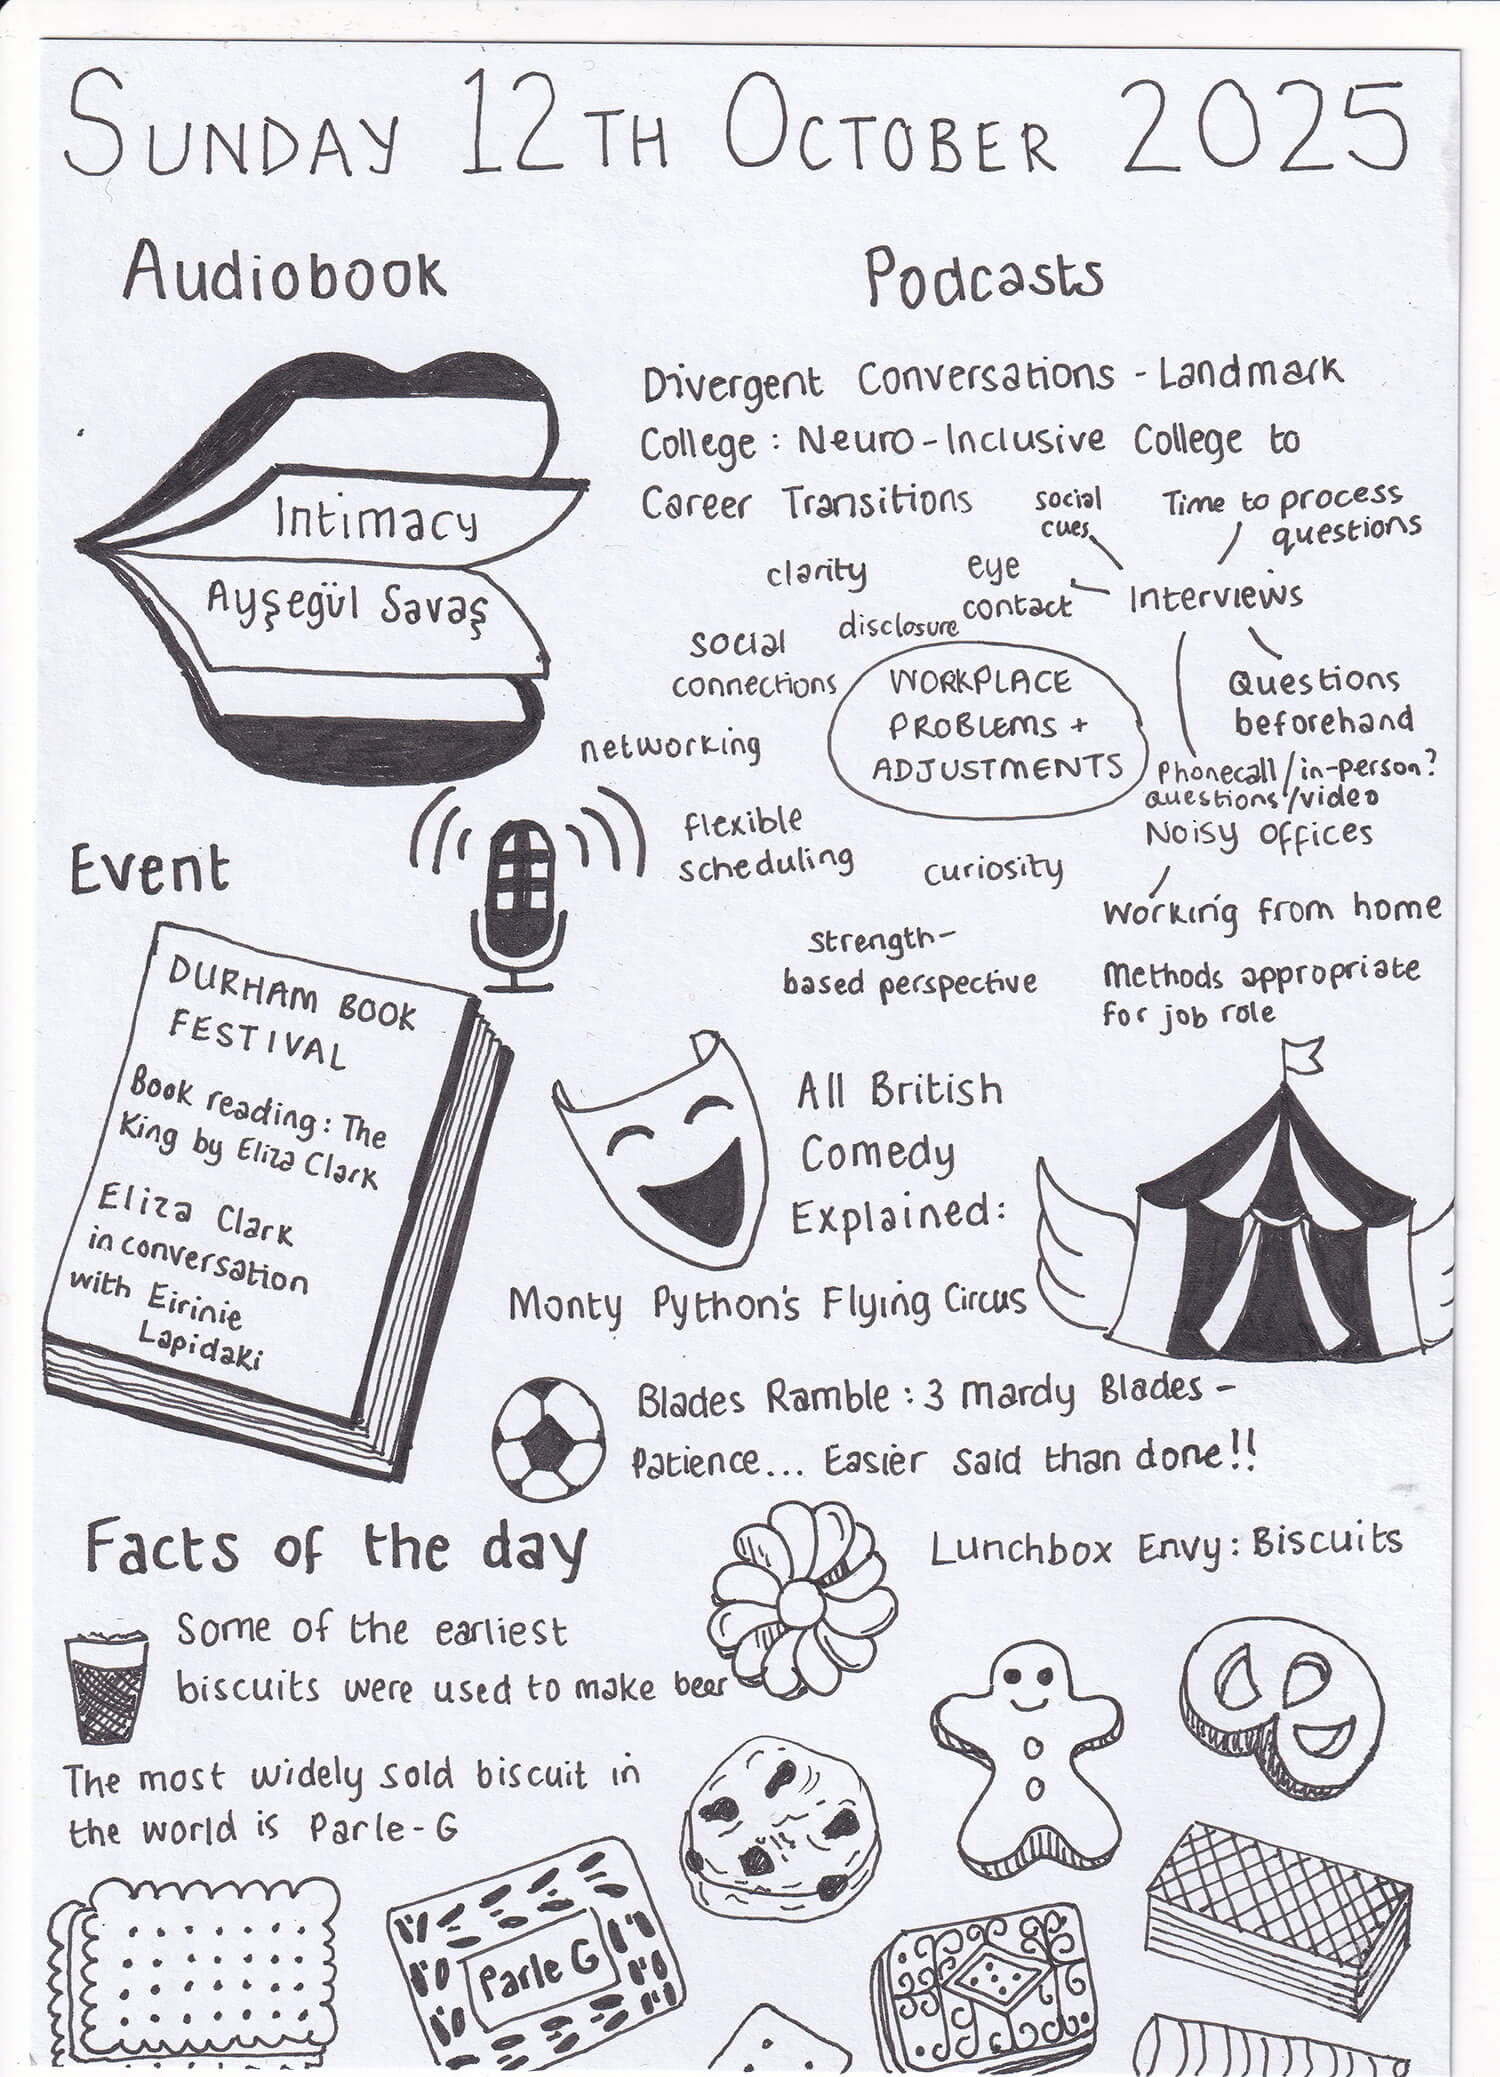 SUNDAY 12TH OCTOBER 2025
Audiobook
Intimacy
Ayşegül Savaş
Podcasts
Divergent Conversations - Landmark
College : Neuro-Inclusive College to
Career Transitions
social
cues
Time to process
questions
clarity
eye
contact
Interviews
disclosure
social
connections
WORKPLACE
PROBLEMS +
ADJUSTMENTS
Questions
beforehand
networking
Phonecall/in-person?
questions/video
flexible
scheduling
curiosity
Noisy offices
Working from home
strength-
based perspective
Methods appropriate
for job role
Event
DURHAM BOOK
FESTIVAL
Book reading: The
King by Eliza Clark
Eliza Clark
in conversation
with Eirinie
Lapidaki
All British
Comedy
Explained:
Monty Python's Flying Circus
Blades Ramble : 3 Mardy Blades -
Patience... Easier said than done!!
Lunchbox Envy: Biscuits
Facts of the day
Some of the earliest
biscuits were used to make beer
The most widely sold biscuit in
the world is Parle-G
Parle G